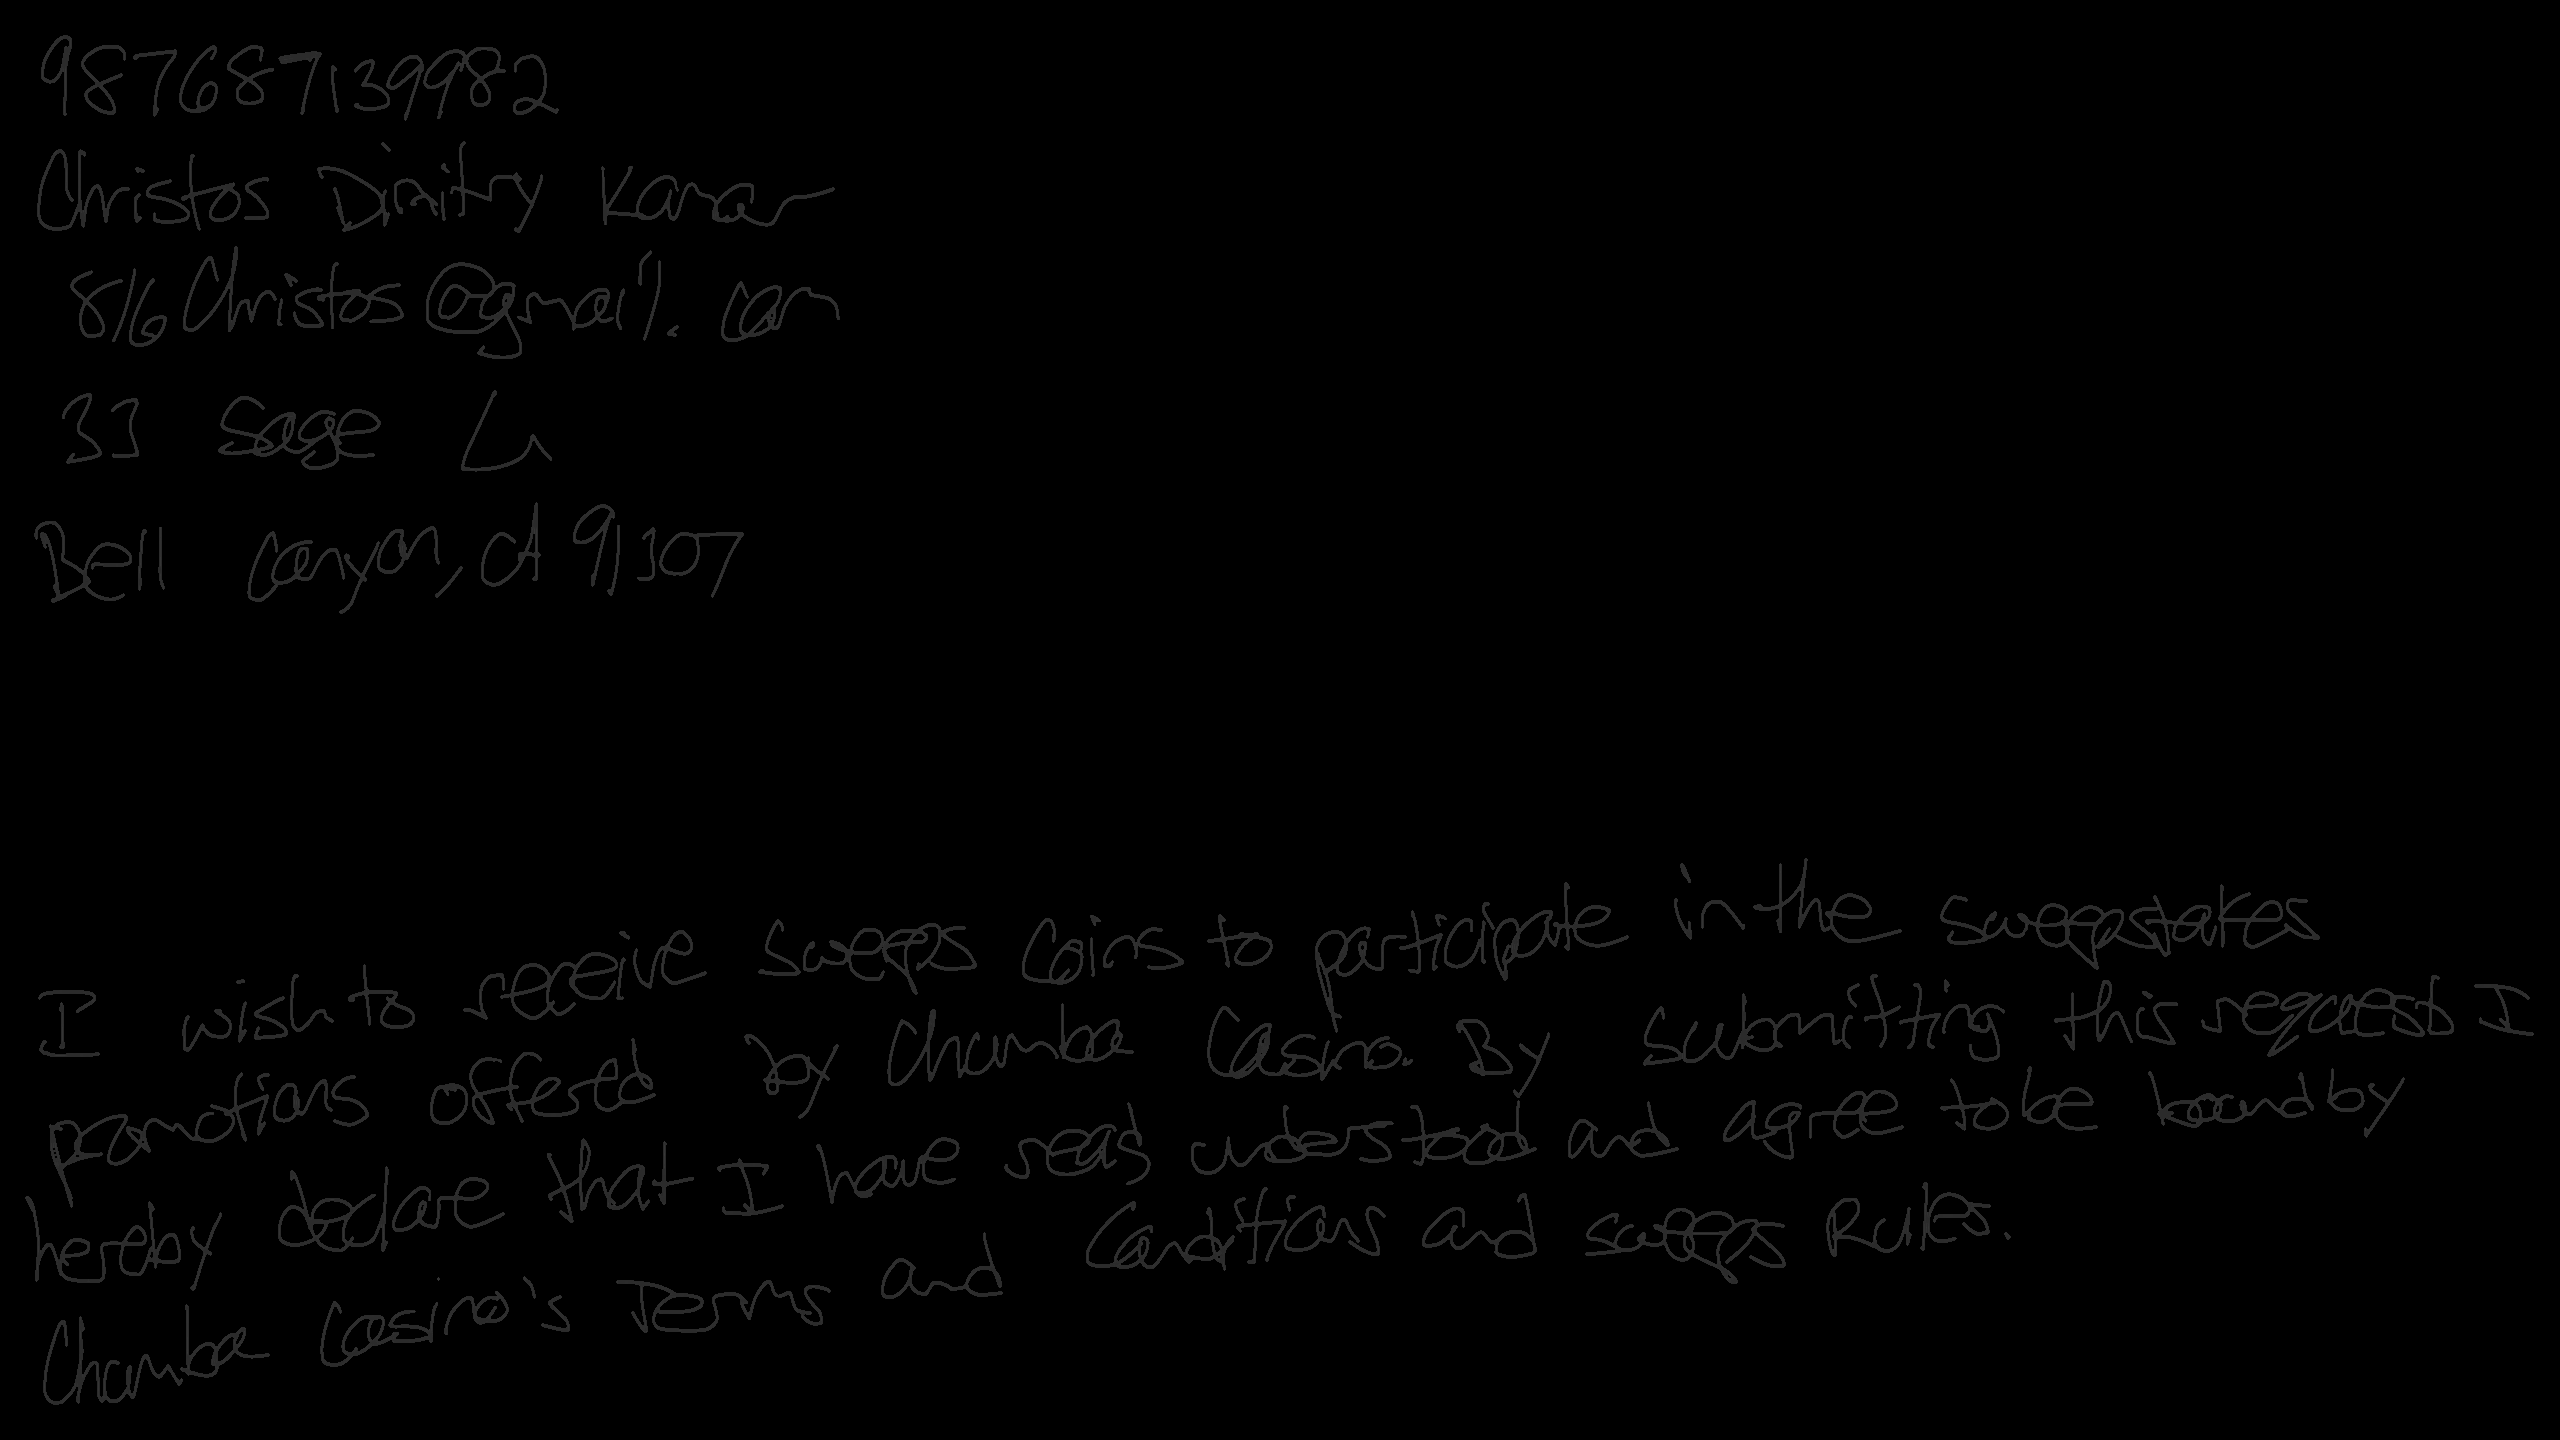 987687139982
Christos Dimitry Kamar
816Christos@gmail.com
33 Sage Ln
Bell Canyon, CA 91307
I wish to receive sweeps coins to participate in the sweepstakes
promotions offered by Chumba Casino. By submitting this request I
hereby declare that I have read understood and agree to be bound by
Chumba Casino's Terms and Conditions and sweeps Rules.